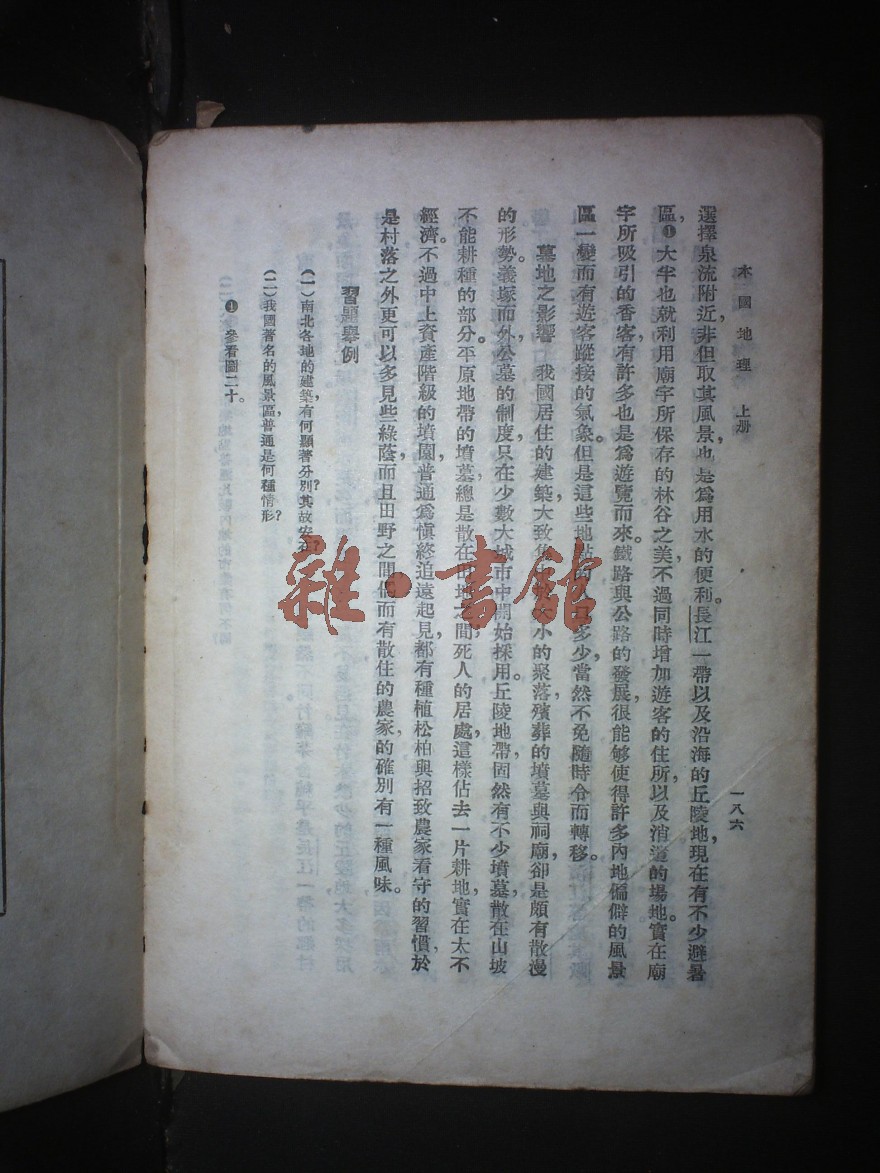 本國地理　上册
一八六
選擇泉流附近，非但取其風景，也是爲用水的便利。長江一帶以及沿海的丘陵地，現在有不少避暑
區，❶大半也就利用廟宇所保存的林谷之美，不過同時增加遊客的住所，以及消遣的場地。實在廟
宇所吸引的香客，有許多也是爲遊覽而來。鐵路與公路的發展，很能够使得許多內地偏僻的風景
區一變而有遊客蹤接的氣象。但是這些地點的人口多少，當然不免隨時令而轉移。
墓地之影響　我國居住的建築，大致集 小的聚落，殯葬的墳墓與祠廟，卻是頗有散漫
的形勢。義塚而外，公墓的制度，只在少數大城市中開始採用。丘陵地帶，固然有不少墳墓，散在山坡
不能耕種的部分。平原地帶的墳墓，總是散在田地之間，死人的居處，這樣佔去一片耕地，實在太不
經濟。不過中上資產階級的墳園，普通爲愼終追遠起見，都有種植松柏與招致農家看守的習慣，於
是村落之外，更可以多見些綠蔭，而且田野之間，偶而有散住的農家，的確別有一種風味。
習題舉例
（一）南北各地的建築，有何顯著分別？其故安在
（二）我國著名的風景區，普通是何種情形？
❶　參看圖二十。
雜·書館